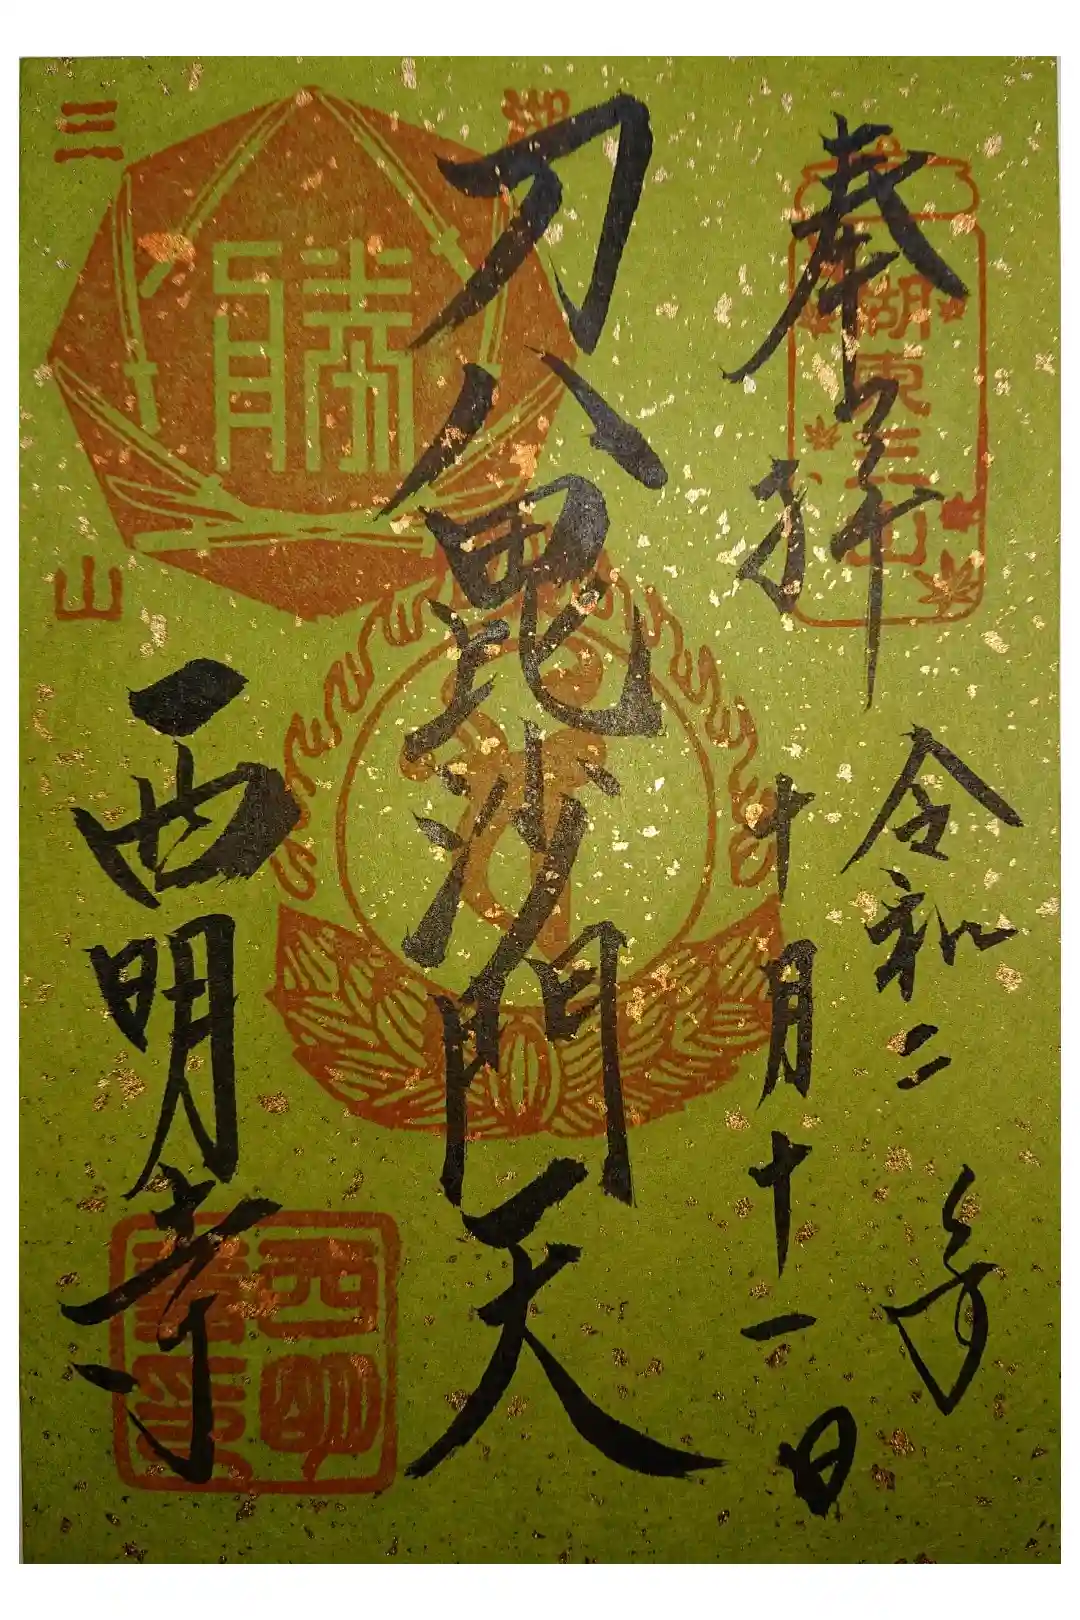 奉拝
湖東三山
令和二年
十月十一日
刀八毘沙門天
勝
三
山
西明寺
西明